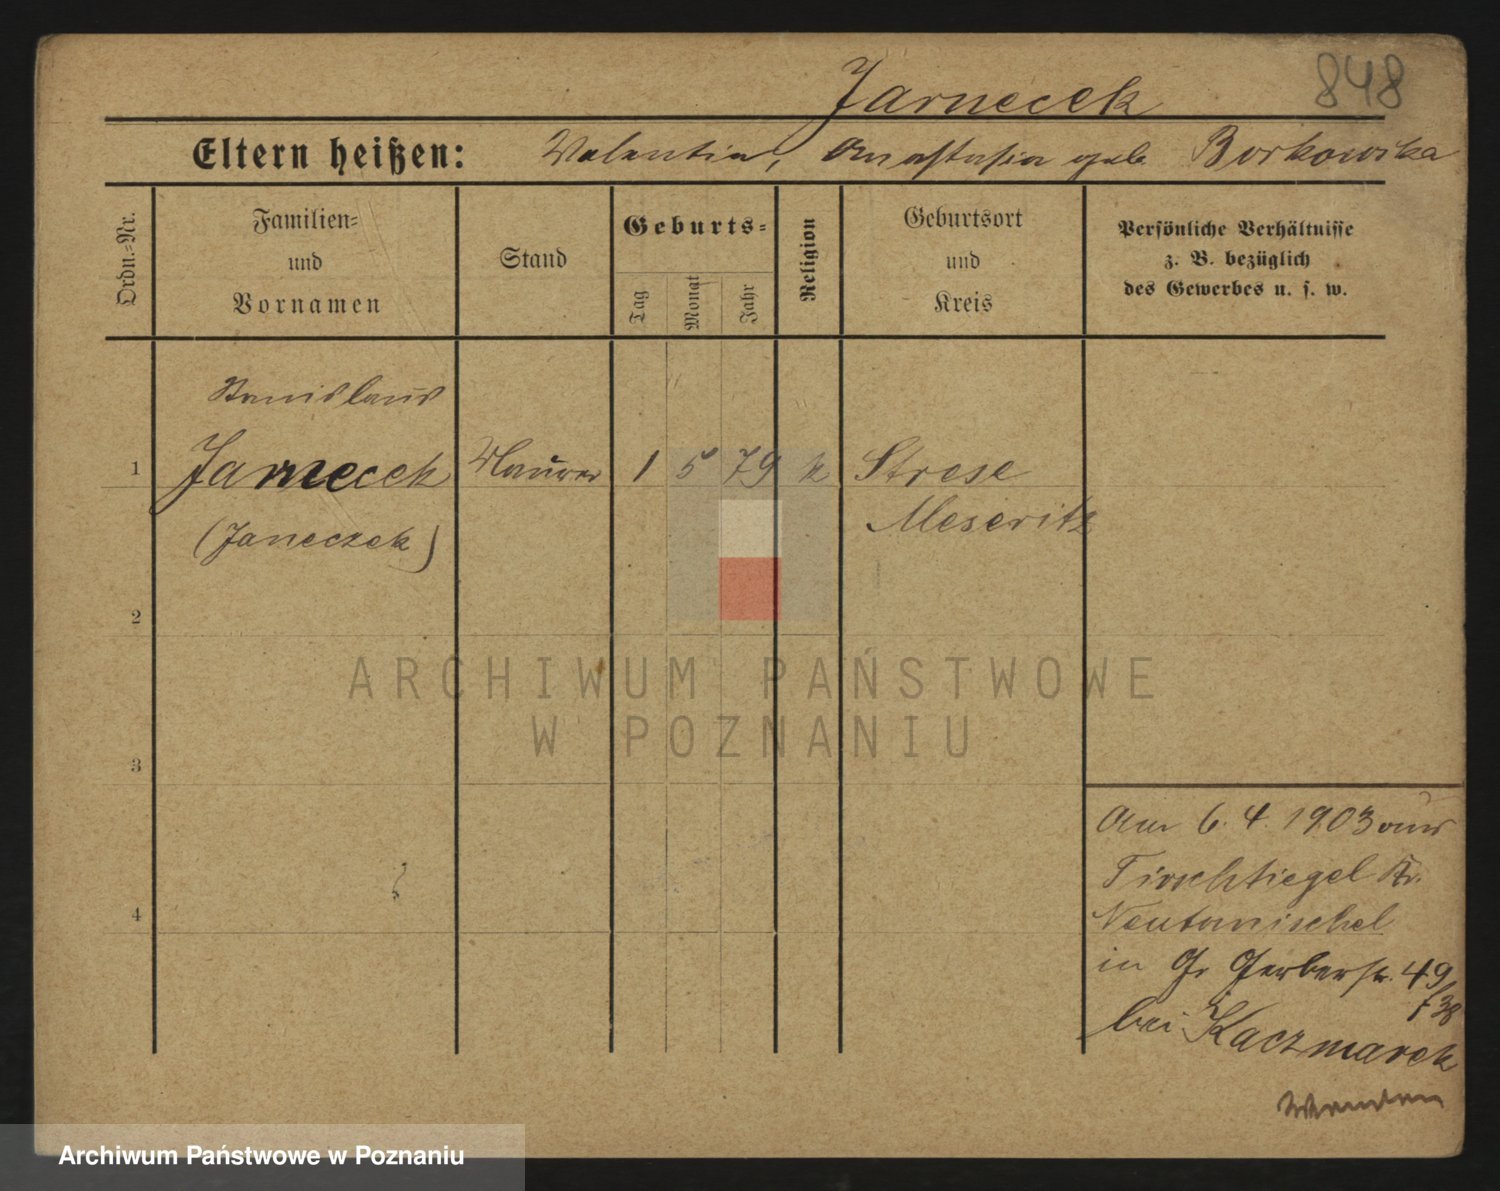 Jarnecek
848
Eltern heißen: Valentin, Anastasia geb Borkowska
Ordn.-Nr.
Familien-
und
Vornamen
Stand
Geburts-
Tag
Monat
Jahr
Religion
Geburtsort
und
Kreis
Persönliche Verhältnisse
z. B. bezüglich
des Gewerbes u. s. w.
Stanislaus
1 Jarnecek Maurer 1 5 79 k Strese
Meseritz
(Janeczek)
2
3
4
Am 6. 4. 1903 aus
Tirschtiegel Kr.
Neutomischel
in Gr Gerberstr. 49
/38
bei Kaczmarek
Wenden
ARCHIWUM PAŃSTWOWE
W POZNANIU
Archiwum Państwowe w Poznaniu